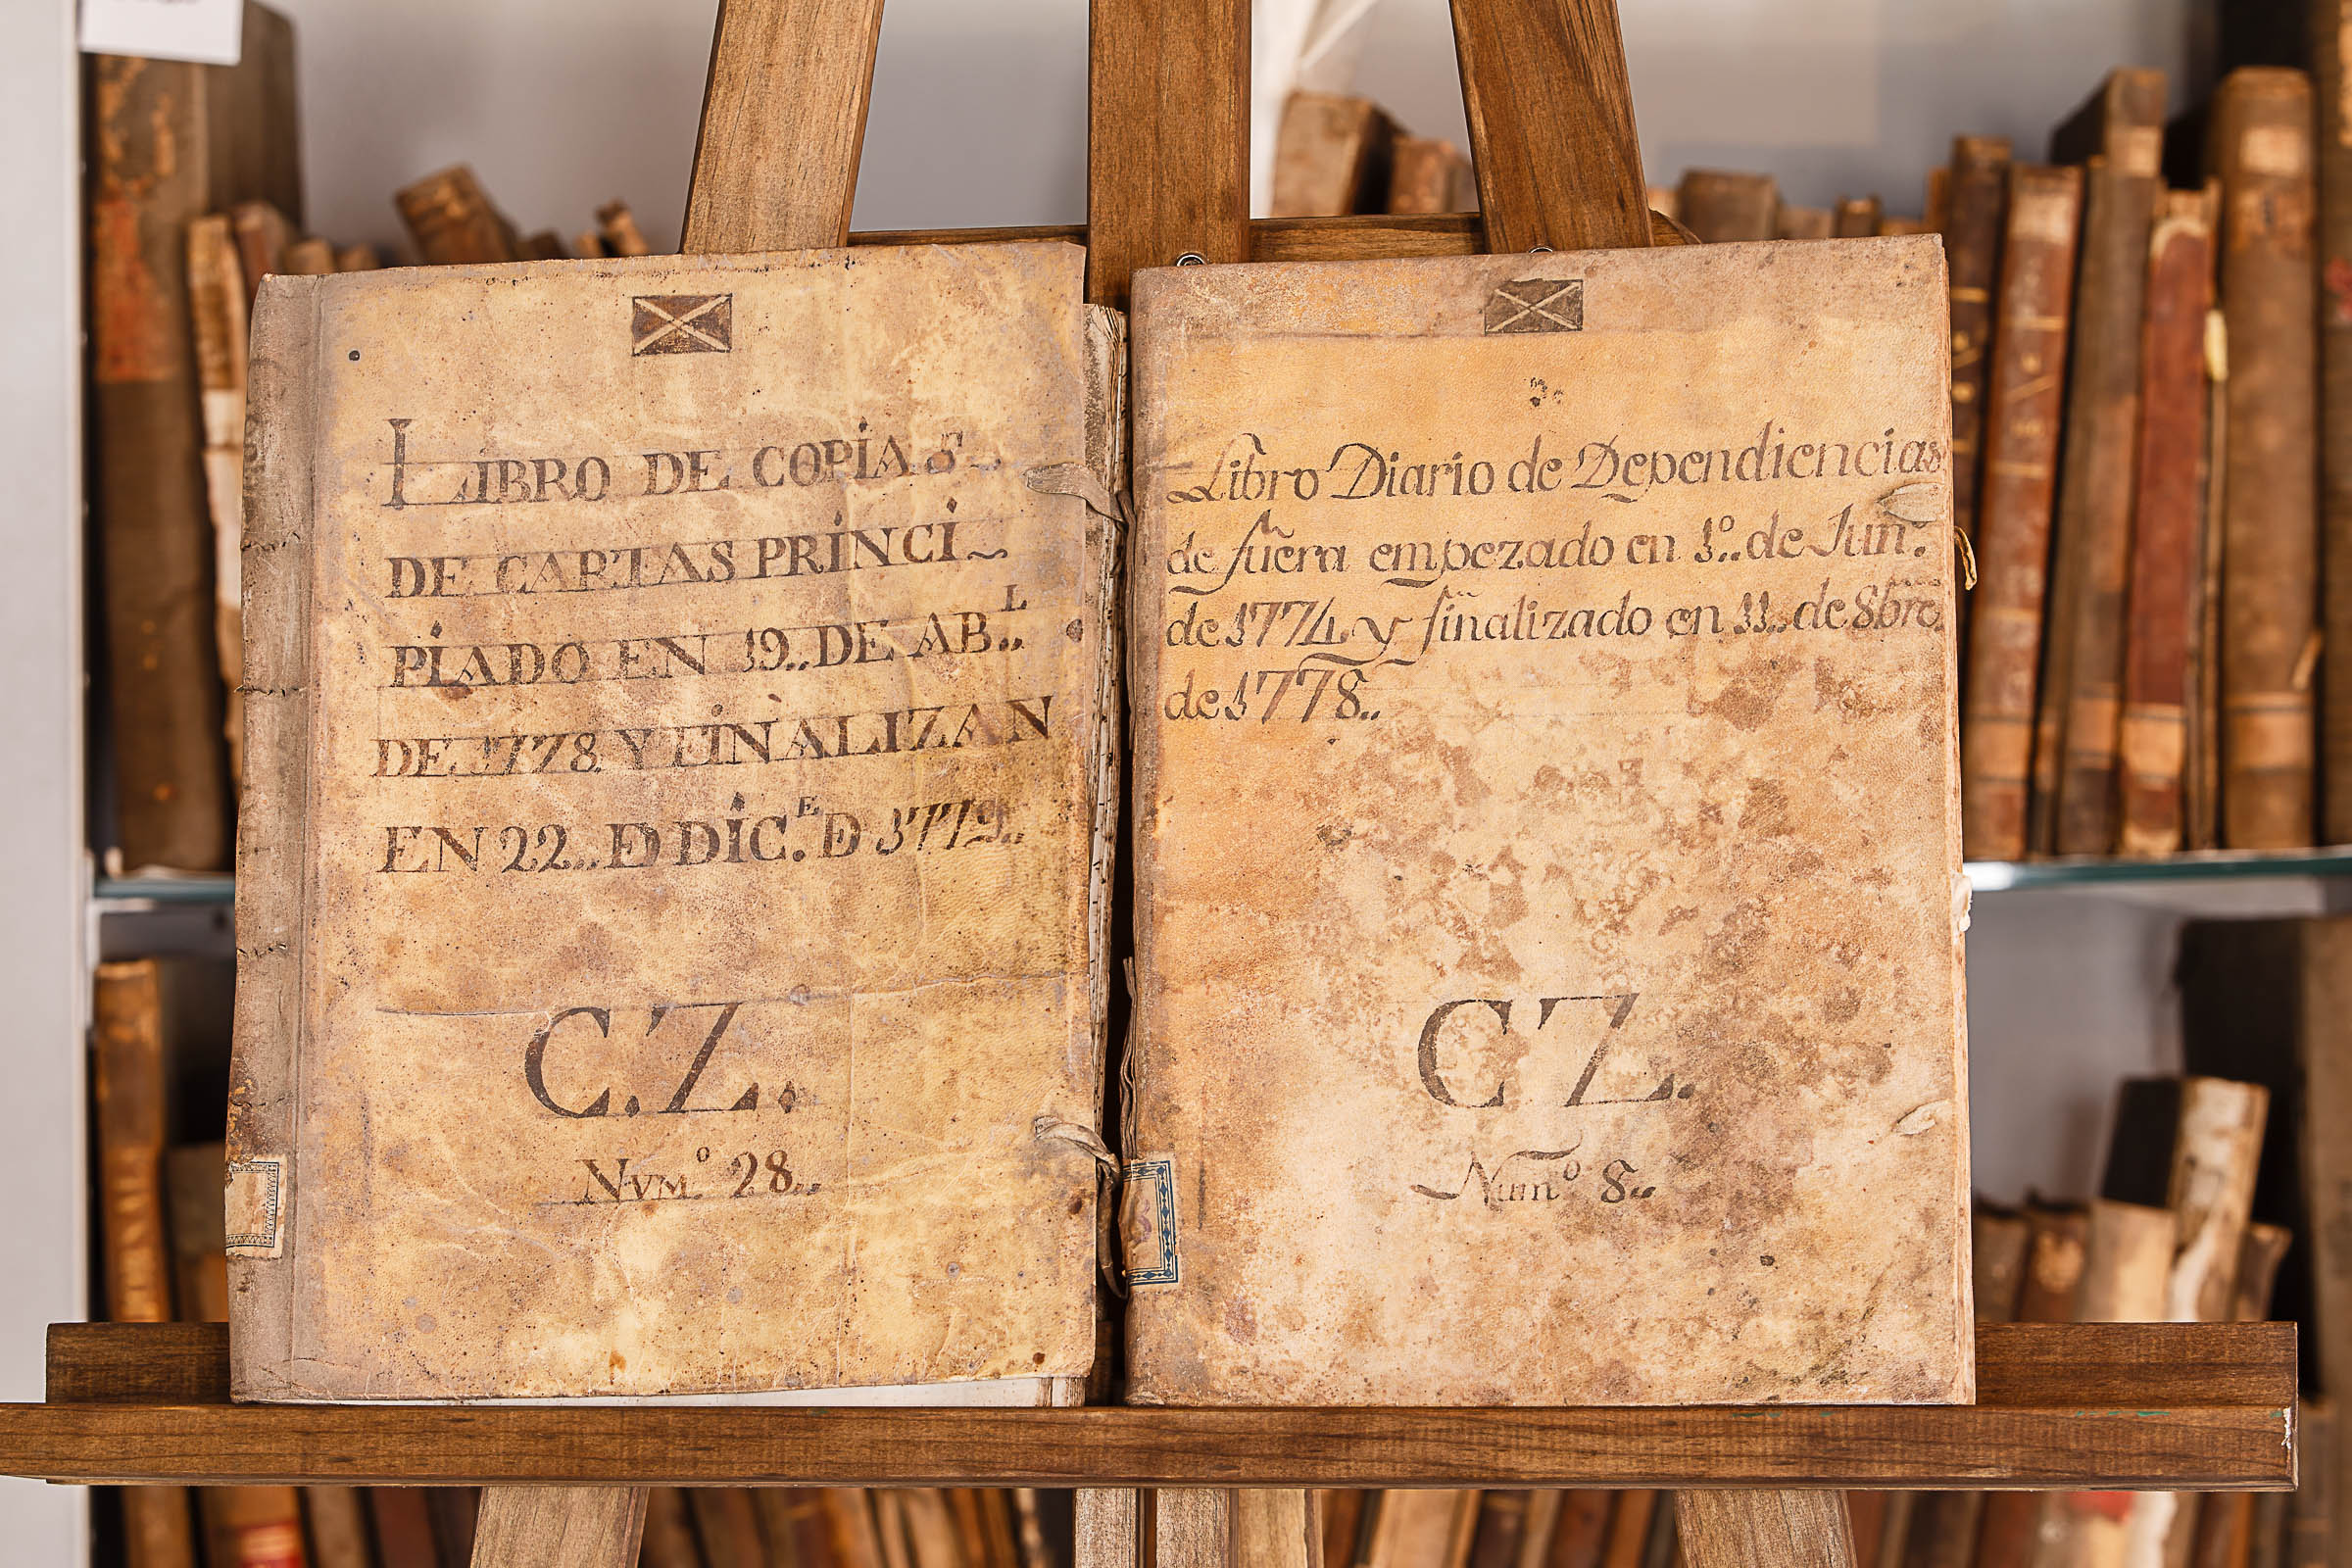 LIBRO DE COPIAS
DE CARTAS PRINCI~
PIADO EN 19.. DE AB.L
DE 1778. Y FINALIZAN
EN 22.. DE DIC.E DE 1779..
C.Z.
NVM.º 28..
Libro Diario de Dependiencias
de fuera empezado en 1º.. de Jun.º
de 1774. y finalizado en 11.. de 8bre.
de 1778..
C Z.
Numº 8..